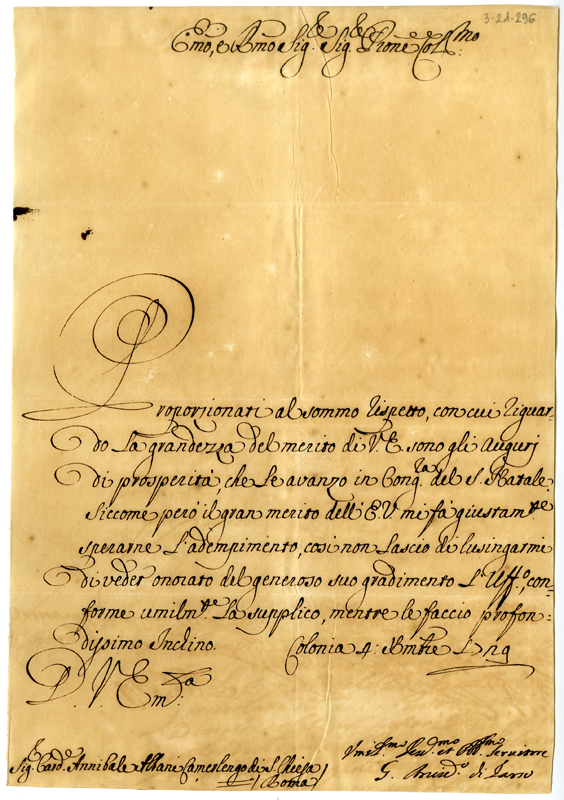 3-21-296
Emo, e Rmo Sig.re Sig.re Prone Col.mo
Proporzionati al sommo rispetto, con cui riguar-
do la grandezza del merito di V. E. sono gli augurj
di prosperità, che le avanzo in Cong.ra del S. Natale.
Siccome però il gran merito dell'E. V. mi fà giustam.te
sperarne l'adempimento, così non lascio di lusingarmi
di veder onorato del generoso suo gradimento l'Uff.o, con-
forme umilm.te la supplico, mentre le faccio profon-
dissimo inclino. Colonia 4: Xmbre
D. V. Em.za
Sig. Card.e Annibale Albani Camerlengo di S. Chiesa
(Roma)
Servitore
G.